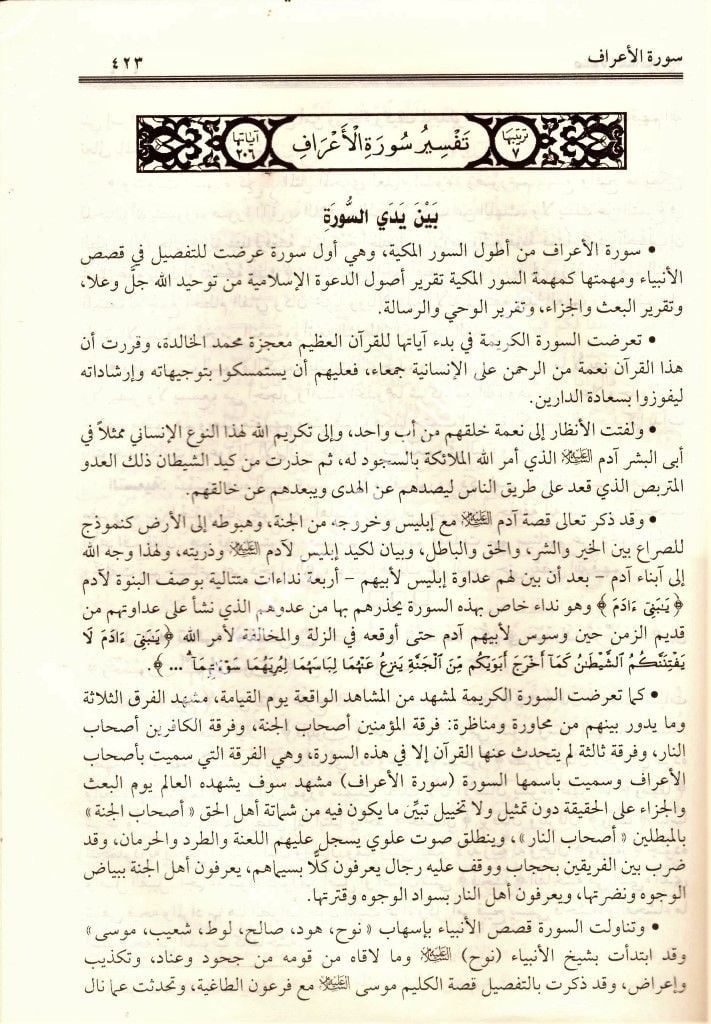 سورة الأعراف ٤٢٣
ترتيبها ٧ تَفْسِيرُ سُورَةِ الْأَعْرَافِ آياتها ٢٠٦
بَيْنَ يَدَي السُّورَةِ
• سورة الأعراف من أطول السور المكية، وهي أول سورة عرضت للتفصيل في قصص
الأنبياء ومهمتها كمهمة السور المكية تقرير أصول الدعوة الإسلامية من توحيد الله جلَّ وعلا،
وتقرير البعث والجزاء، وتقرير الوحي والرسالة.
• تعرضت السورة الكريمة في بدء آياتها للقرآن العظيم معجزة محمد الخالدة، وقررت أن
هذا القرآن نعمة من الرحمن على الإنسانية جمعاء، فعليهم أن يستمسكوا بتوجيهاته وإرشاداته
ليفوزوا بسعادة الدارين.
• ولفتت الأنظار إلى نعمة خلقهم من أب واحد، وإلى تكريم الله لهذا النوع الإنساني ممثلاً في
أبى البشر آدم عليه السلام الذي أمر الله الملائكة بالسجود له، ثم حذرت من كيد الشيطان ذلك العدو
المتربص الذي قعد على طريق الناس ليصدهم عن الهدى ويبعدهم عن خالقهم.
• وقد ذكر تعالى قصة آدم عليه السلام مع إبليس وخروجه من الجنة، وهبوطه إلى الأرض كنموذج
للصراع بين الخير والشر، والحق والباطل، وبيان لكيد إبليس لآدم عليه السلام وذريته، ولهذا وجه الله
إلى أبناء آدم – بعد أن بين لهم عداوة إبليس لأبيهم – أربعة نداءات متتالية بوصف البنوة لآدم
﴿ يَـٰبَنِىٓ ءَادَمَ ﴾ وهو نداء خاص بهذه السورة يحذرهم بها من عدوهم الذي نشأ على عداوتهم من
قديم الزمن حين وسوس لأبيهم آدم حتى أوقعه في الزلة والمخالفة لأمر الله ﴿ يَـٰبَنِىٓ ءَادَمَ لَا
يَفْتِنَنَّكُمُ ٱلشَّيْطَـٰنُ كَمَآ أَخْرَجَ أَبَوَيْكُم مِّنَ ٱلْجَنَّةِ يَنزِعُ عَنْهُمَا لِبَاسَهُمَا لِيُرِيَهُمَا سَوْءَٰتِهِمَآ ... ﴾.
• كما تعرضت السورة الكريمة لمشهد من المشاهد الواقعة يوم القيامة، مشهد الفرق الثلاثة
وما يدور بينهم من محاورة ومناظرة: فرقة المؤمنين أصحاب الجنة، وفرقة الكافرين أصحاب
النار، وفرقة ثالثة لم يتحدث عنها القرآن إلا في هذه السورة، وهي الفرقة التي سميت بأصحاب
الأعراف وسميت باسمها السورة (سورة الأعراف) مشهد سوف يشهده العالم يوم البعث
والجزاء على الحقيقة دون تمثيل ولا تخييل تبيِّن ما يكون فيه من شماتة أهل الحق «أصحاب الجنة»
بالمبطلين «أصحاب النار»، وينطلق صوت علوي يسجل عليهم اللعنة والطرد والحرمان، وقد
ضرب بين الفريقين بحجاب ووقف عليه رجال يعرفون كلًّا بسيماهم، يعرفون أهل الجنة ببياض
الوجوه ونضرتها، ويعرفون أهل النار بسواد الوجوه وقترتها.
• وتناولت السورة قصص الأنبياء بإسهاب «نوح، هود، صالح، لوط، شعيب، موسى»
وقد ابتدأت بشيخ الأنبياء (نوح) عليه السلام وما لاقاه من قومه من جحود وعناد، وتكذيب
وإعراض، وقد ذكرت بالتفصيل قصة الكليم موسى عليه السلام مع فرعون الطاغية، وتحدثت عما نال